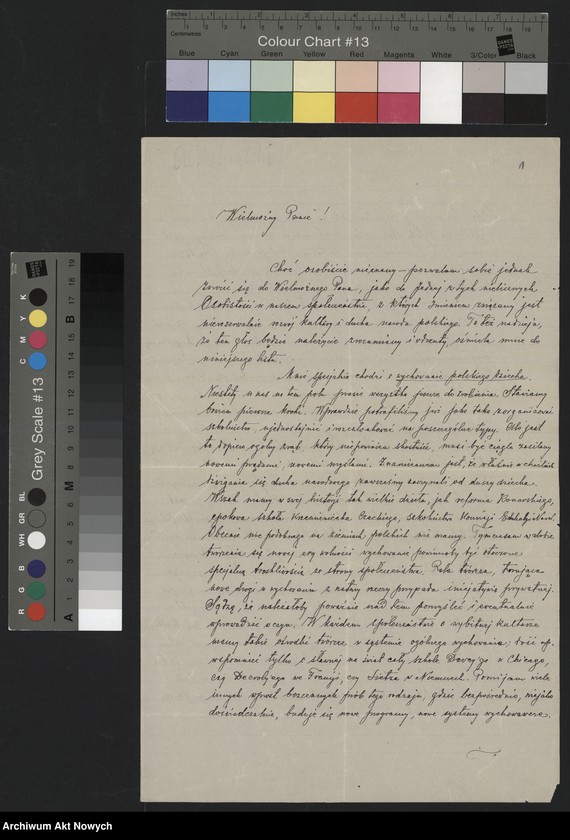 Inches
Centimetres
Colour Chart #13
Blue Cyan Green Yellow Red Magenta White 3/Color Black
Grey Scale #13
C M Y K
R G B WH GR BL
A 1 2 3 4 5 6 M 8 9 10 11 12 13 14 15 B 17 18 19
1
Wielmożny Panie!
Choć osobiście nieznany – pozwalam sobie jednak
zwrócić się do Wielmożnego Pana, jako do jednej z tych nielicznych
Osobistości w naszem społeczeństwie, z których imieniem związany jest
nierozerwalnie rozwój kultury i ducha narodu polskiego. Toteż nadzieja,
że ten głos będzie należycie zrozumiany i odczuty, ośmiela mnie do
niniejszego listu.
Mnie specjalnie chodzi o wychowanie polskiego dziecka.
Niestety u nas na tem polu prawie wszystko jeszcze do zrobienia. Stawiamy
bowiem pierwsze kroki. Wprawdzie potrafiliśmy już jako tako zorganizować
szkolnictwo, ujednostajnić i rozczłonkować na poszczególne typy. Ale jest
to dopiero ogólny zrąb, który niepowinien skostnieć, musi być ciągle zasilany
nowemi prądami, nowemi myślami. Znamiennem jest, że właśnie w chwilach
dźwigania się ducha narodowego zawsześmy zaczynali od duszy dziecka.
Wszak mamy w swej historji tak wielkie dzieła, jak reforma Konarskiego,
epokowa szkoła Krzemieniecka Czackiego, szkolnictwo Komisji Edukacyjnej.
Obecnie nic podobnego na ziemiach polskich nie mamy. Tymczasem w dobie
tworzenia się nowej ery wolności wychowanie powinnoby być otoczone
specjalną troskliwością ze strony społeczeństwa. Rola twórcza, torująca
nowe drogi w wychowaniu z natury rzeczy przypada inicjatywie prywatnej.
Sądzę, że należałoby poważnie nad tem pomyśleć i ewentualnie
wprowadzić w czyn. W każdem społeczeństwie o wybitnej kulturze
mamy takie ośrodki twórcze w systemie ogólnego wychowania; dość np.
wspomnieć tylko o sławnej na świat cały szkole Dewey'go w Chicago,
czy Decroly'ego we Francji, czy w Niemczech. Pomijam wiele
innych wprost bezcennych prób tego rodzaju, gdzie bezpośrednio,
doświadczalnie, buduje się nowe programy, nowe systemy wychowawcze.
Archiwum Akt Nowych